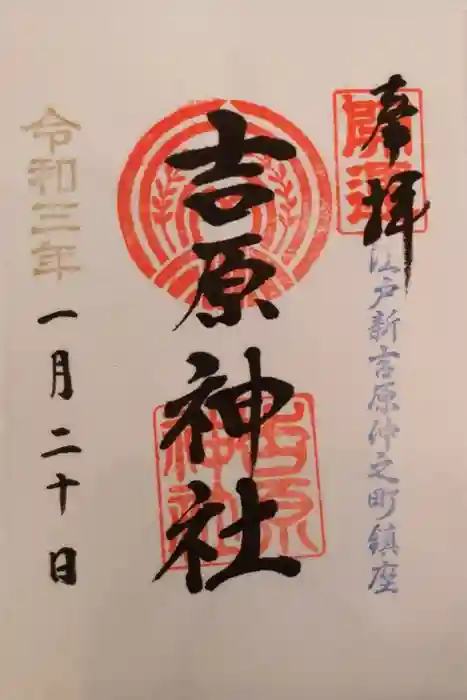 奉拝
開運
江戸新吉原仲之町鎮座
吉原神社
吉原神社
令和三年
一月二十日